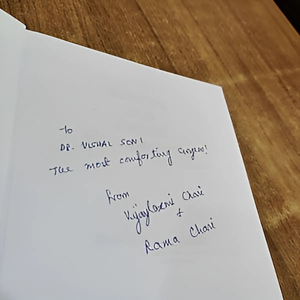 To
DR. VISHAL SONI
The most comforting surgeon!
from
Vijaylaxmi Chari
+
Rama Chari